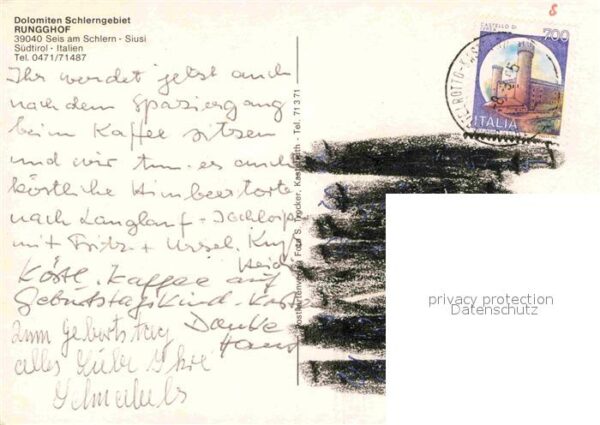 Dolomiten Schlerngebiet
RUNGGHOF
39040 Seis am Schlern - Siusi
Südtirol - Italien
Tel. 0471/71487
Ihr werdet jetzt auch
nach dem Spaziergang
beim Kaffee sitzen
und wir tun es auch
köstliche Himbeertorte
nach Langlauf +
mit Fritz + Ursel.
Heidi
Köstl. Kaffee auf
Geburtstagskind
Danke
Hans
Zum Geburtstag
alles Liebe Ihre
Schnabels
Foto S. Trocker, Kastelruth - Tel. 71371
CASTELLO DI
700
ITALIA
8
privacy protection
Datenschutz